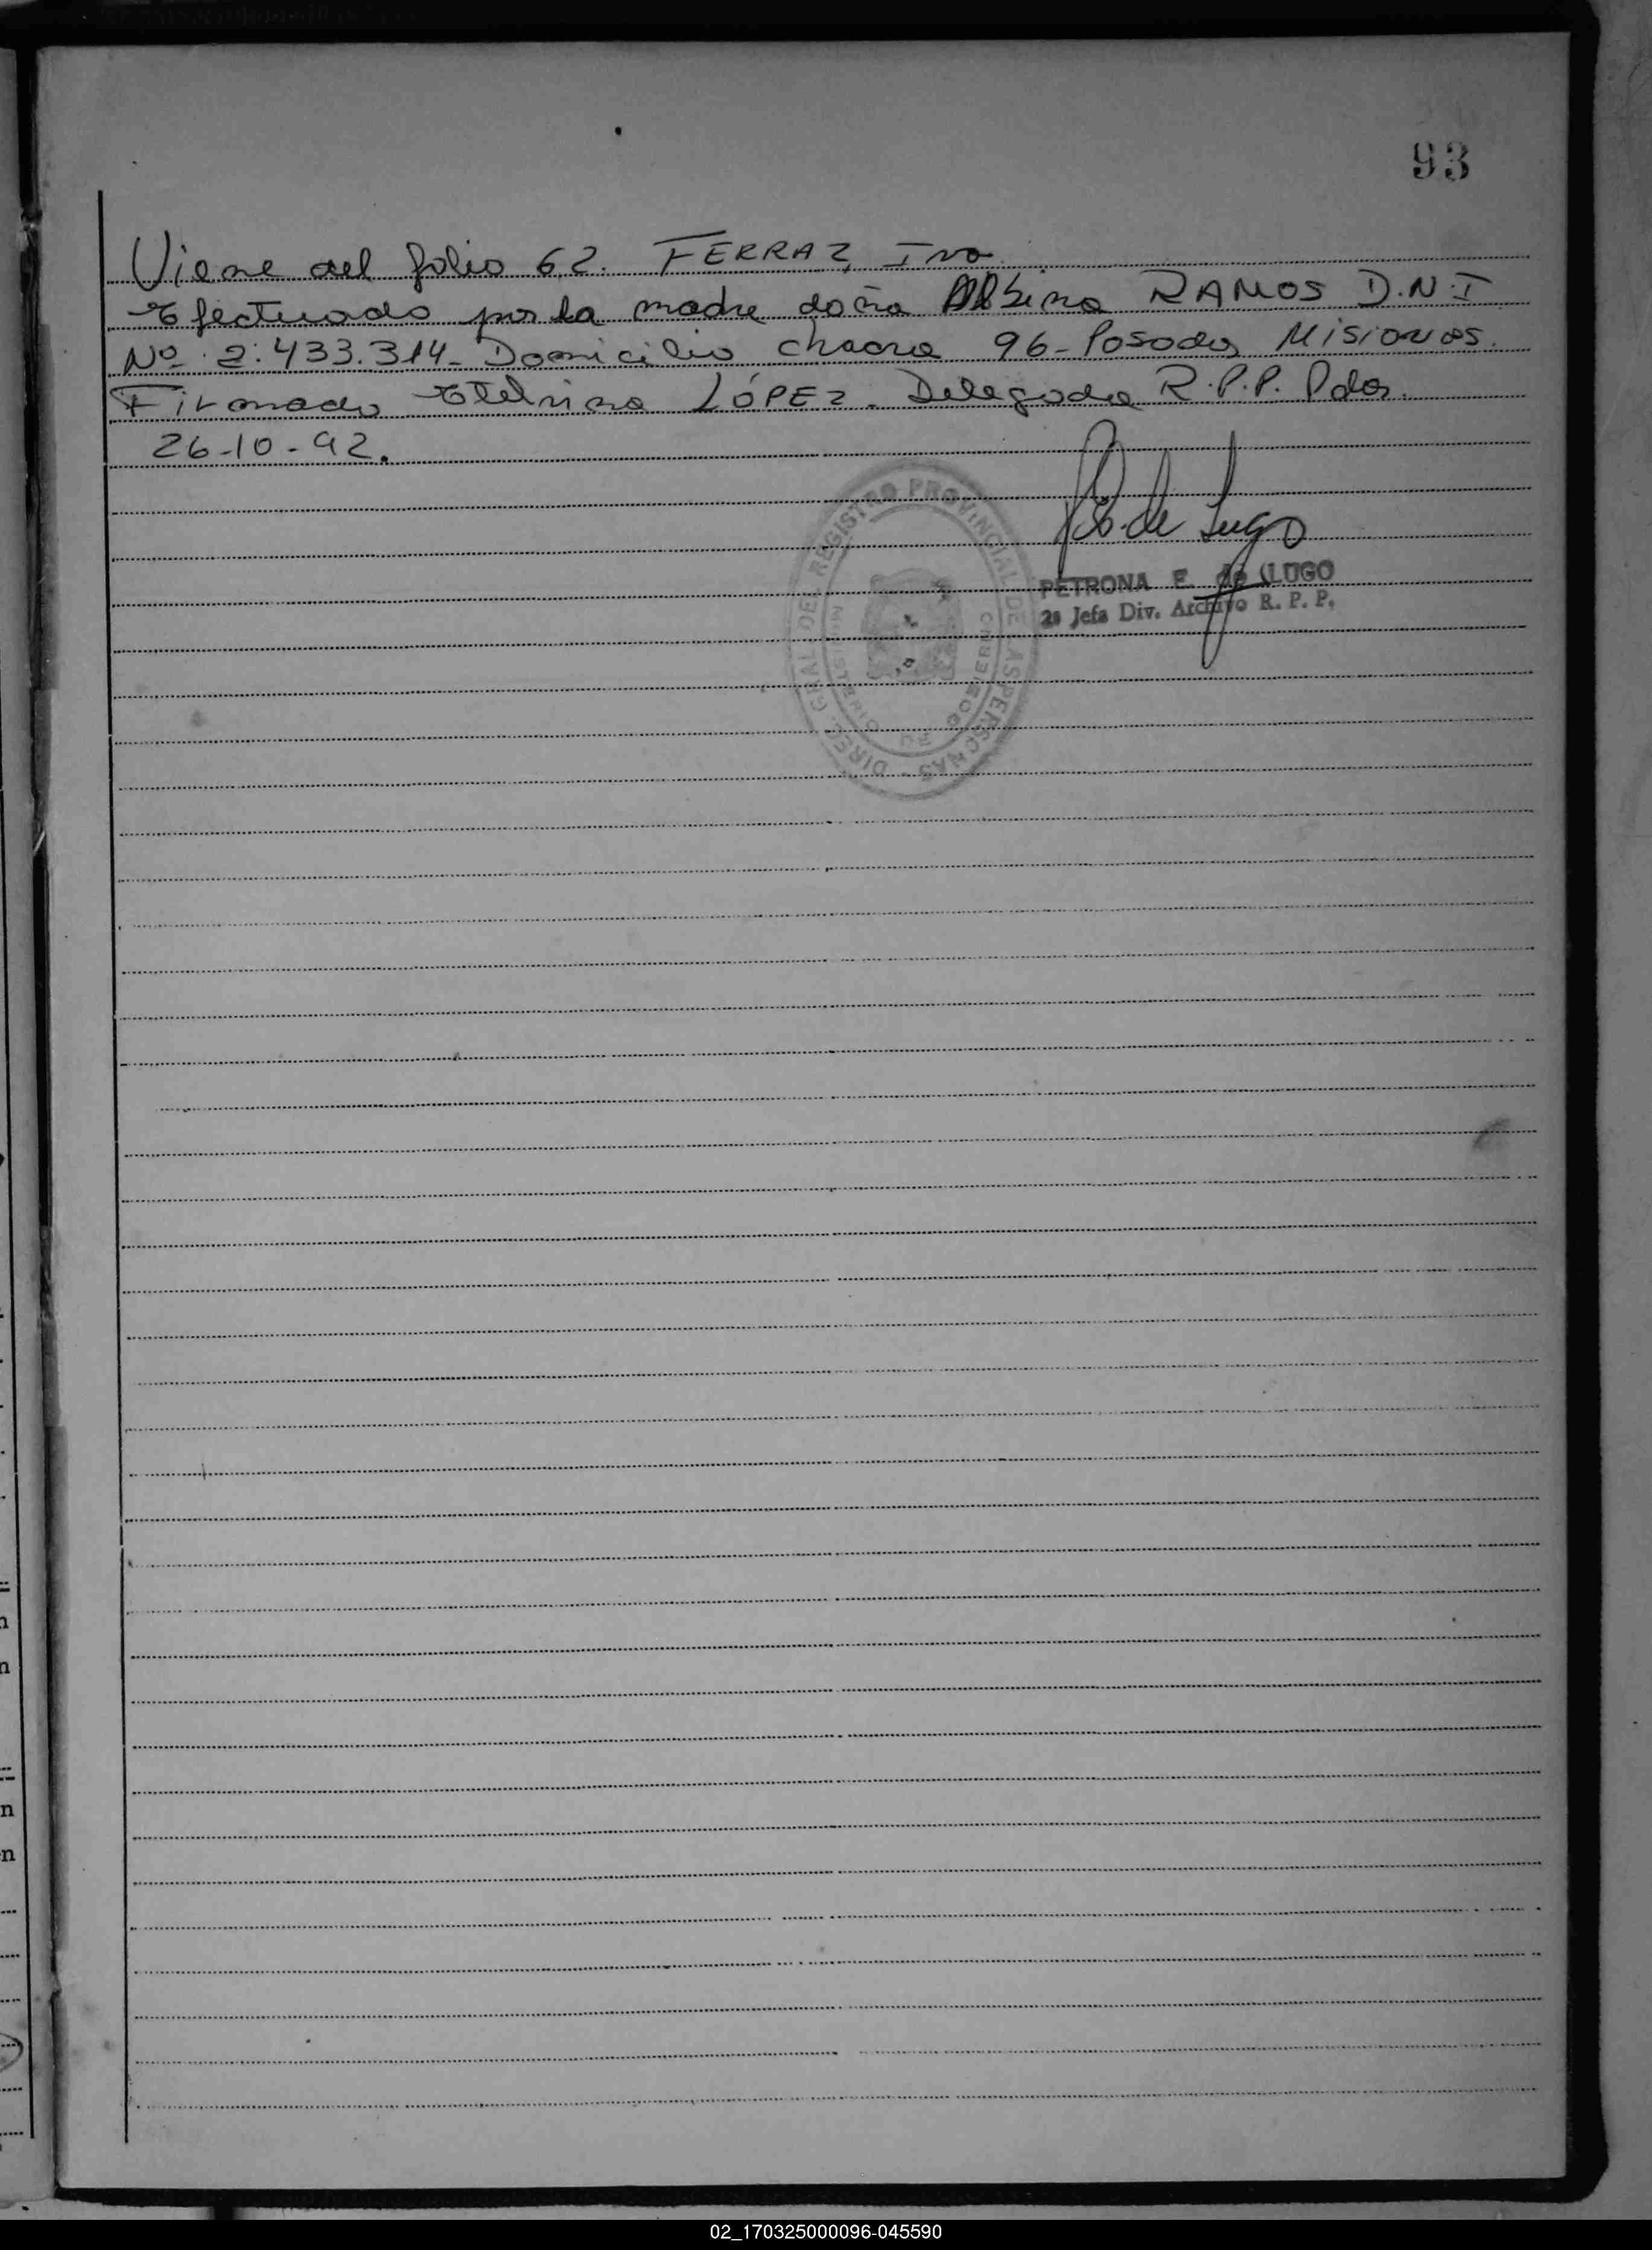 93
Viene del folio 62. FERRAZ, Ivo
Efectuado por la madre doña Albina RAMOS D.N.I
Nº 2.433.314- Domicilio chacra 96- Posadas Misiones.
Firmado Etelvina LÓPEZ. Delegada R.P.P. Pdas.
26-10-92.
P. E. de Lugo
PETRONA E. de LUGO
2ª Jefa Div. Archivo R. P. P.
DIREC. GRAL DEL REGISTRO PROVINCIAL DE LAS PERSONAS
02_170325000096-045590